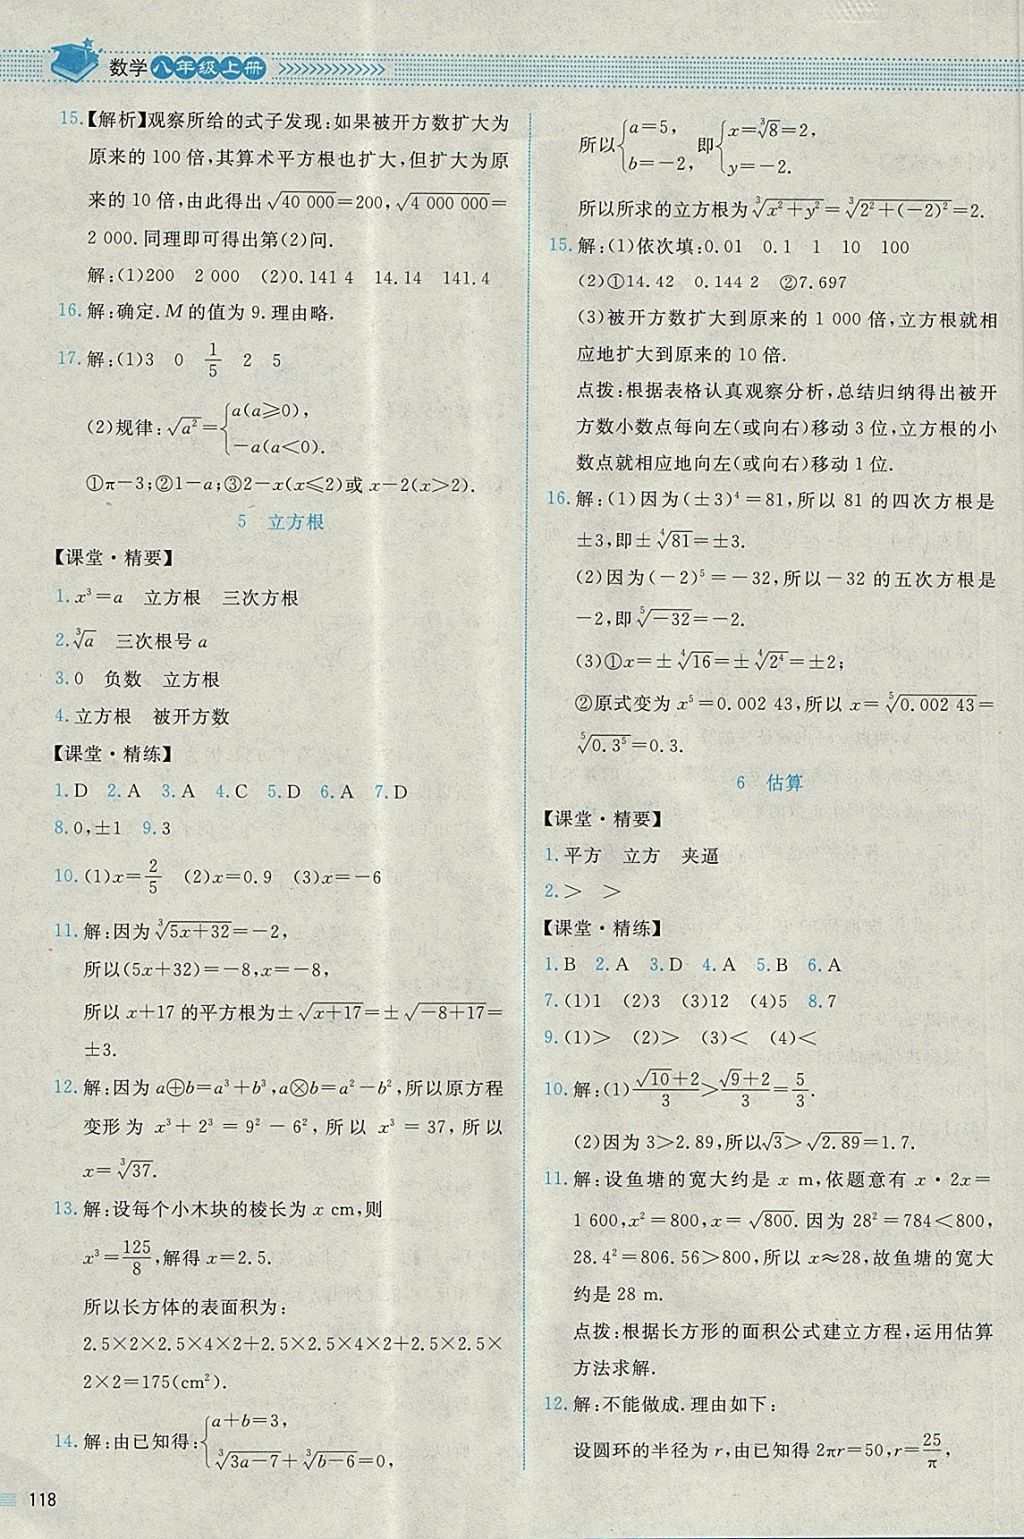 数学八年级上册
15.【解析】观察所给的式子发现:如果被开方数扩大为
原来的 100 倍,其算术平方根也扩大,但扩大为原
来的 10 倍,由此得出√40 000=200,√4 000 000=
2 000.同理即可得出第(2)问.
解:(1)200 2 000 (2)0.141 4 14.14 141.4
16.解:确定.M 的值为 9.理由略.
17.解:(1)3 0 1/5 2 5
(2)规律:√a²={a(a≥0),
−a(a<0).
①π−3;②1−a;③2−x(x≤2)或 x−2(x>2).
5 立方根
【课堂·精要】
1.x³=a 立方根 三次方根
2.∛a 三次根号 a
3.0 负数 立方根
4.立方根 被开方数
【课堂·精练】
1.D 2.A 3.A 4.C 5.D 6.A 7.D
8.0,±1 9.3
10.(1)x=2/5 (2)x=0.9 (3)x=−6
11.解:因为∛(5x+32)=−2,
所以(5x+32)=−8,x=−8,
所以 x+17 的平方根为±√(x+17)=±√(−8+17)=
±3.
12.解:因为 a⊕b=a³+b³,a⊗b=a²−b²,所以原方程
变形为 x³+2³=9²−6²,所以 x³=37,所以
x=∛37.
13.解:设每个小木块的棱长为 x cm,则
x³=125/8,解得 x=2.5.
所以长方体的表面积为:
2.5×2×2.5×4×2+2.5×2.5×4×2+2.5×2.5×
2×2=175(cm²).
14.解:由已知得:{a+b=3,
∛(3a−7)+∛(b−6)=0,
118
所以{a=5,
b=−2,
即{x=∛8=2,
y=−2.
所以所求的立方根为∛(x²+y²)=∛(2²+(−2)²)=2.
15.解:(1)依次填:0.01 0.1 1 10 100
(2)①14.42 0.144 2 ②7.697
(3)被开方数扩大到原来的 1 000 倍,立方根就相
应地扩大到原来的 10 倍.
点拨:根据表格认真观察分析,总结归纳得出被开
方数小数点每向左(或向右)移动 3 位,立方根的小
数点就相应地向左(或向右)移动 1 位.
16.解:(1)因为(±3)⁴=81,所以 81 的四次方根是
±3,即±∜81=±3.
(2)因为(−2)⁵=−32,所以−32 的五次方根是
−2,即⁵√−32=−2.
(3)①x=±∜16=±∜2⁴=±2;
②原式变为 x⁵=0.002 43,所以 x=⁵√0.002 43=
⁵√0.3⁵=0.3.
6 估算
【课堂·精要】
1.平方 立方 夹逼
2.> >
【课堂·精练】
1.B 2.A 3.D 4.A 5.B 6.A
7.(1)1 (2)3 (3)12 (4)5 8.7
9.(1)> (2)> (3)< (4)<
10.解:(1)(√10+2)/3>(√9+2)/3=5/3.
(2)因为 3>2.89,所以√3>√2.89=1.7.
11.解:设鱼塘的宽大约是 x m,依题意有 x·2x=
1 600,x²=800,x=√800.因为 28²=784<800,
28.4²=806.56>800,所以 x≈28,故鱼塘的宽大
约是 28 m.
点拨:根据长方形的面积公式建立方程,运用估算
方法求解.
12.解:不能做成.理由如下:
设圆环的半径为 r,由已知得 2πr=50,r=25/π,